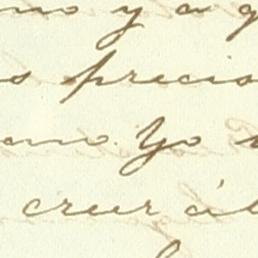 no y a q
s precio
ano. Yo
creer á